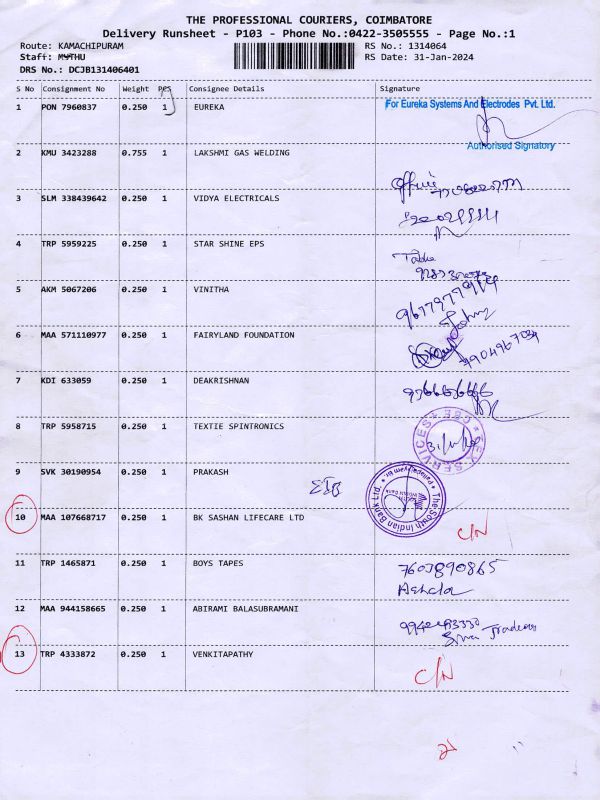 THE PROFESSIONAL COURIERS, COIMBATORE
Delivery Runsheet - P103 - Phone No.:0422-3505555 - Page No.:1
Route: KAMACHIPURAM
RS No.: 1314064
Staff: MYTHU
RS Date: 31-Jan-2024
DRS No.: DCJB131406401
S No Consignment No Weight PCS Consignee Details Signature
1 PON 7960837 0.250 1 EUREKA
For Eureka Systems And Electrodes Pvt. Ltd.
Authorised Signatory
2 KMU 3423288 0.755 1 LAKSHMI GAS WELDING
Office
3 SLM 338439642 0.250 1 VIDYA ELECTRICALS
4 TRP 5959225 0.250 1 STAR SHINE EPS
5 AKM 5067206 0.250 1 VINITHA
6 MAA 571110977 0.250 1 FAIRYLAND FOUNDATION
7 KDI 633059 0.250 1 DEAKRISHNAN
8 TRP 5958715 0.250 1 TEXTIE SPINTRONICS
SERVICES * CBE *
9 SVK 30190954 0.250 1 PRAKASH
SIB
The South Indian Bank Ltd.
10 MAA 107668717 0.250 1 BK SASHAN LIFECARE LTD
C/N
11 TRP 1465871 0.250 1 BOYS TAPES
7603890865
12 MAA 944158665 0.250 1 ABIRAMI BALASUBRAMANI
13 TRP 4333872 0.250 1 VENKITAPATHY
C/N